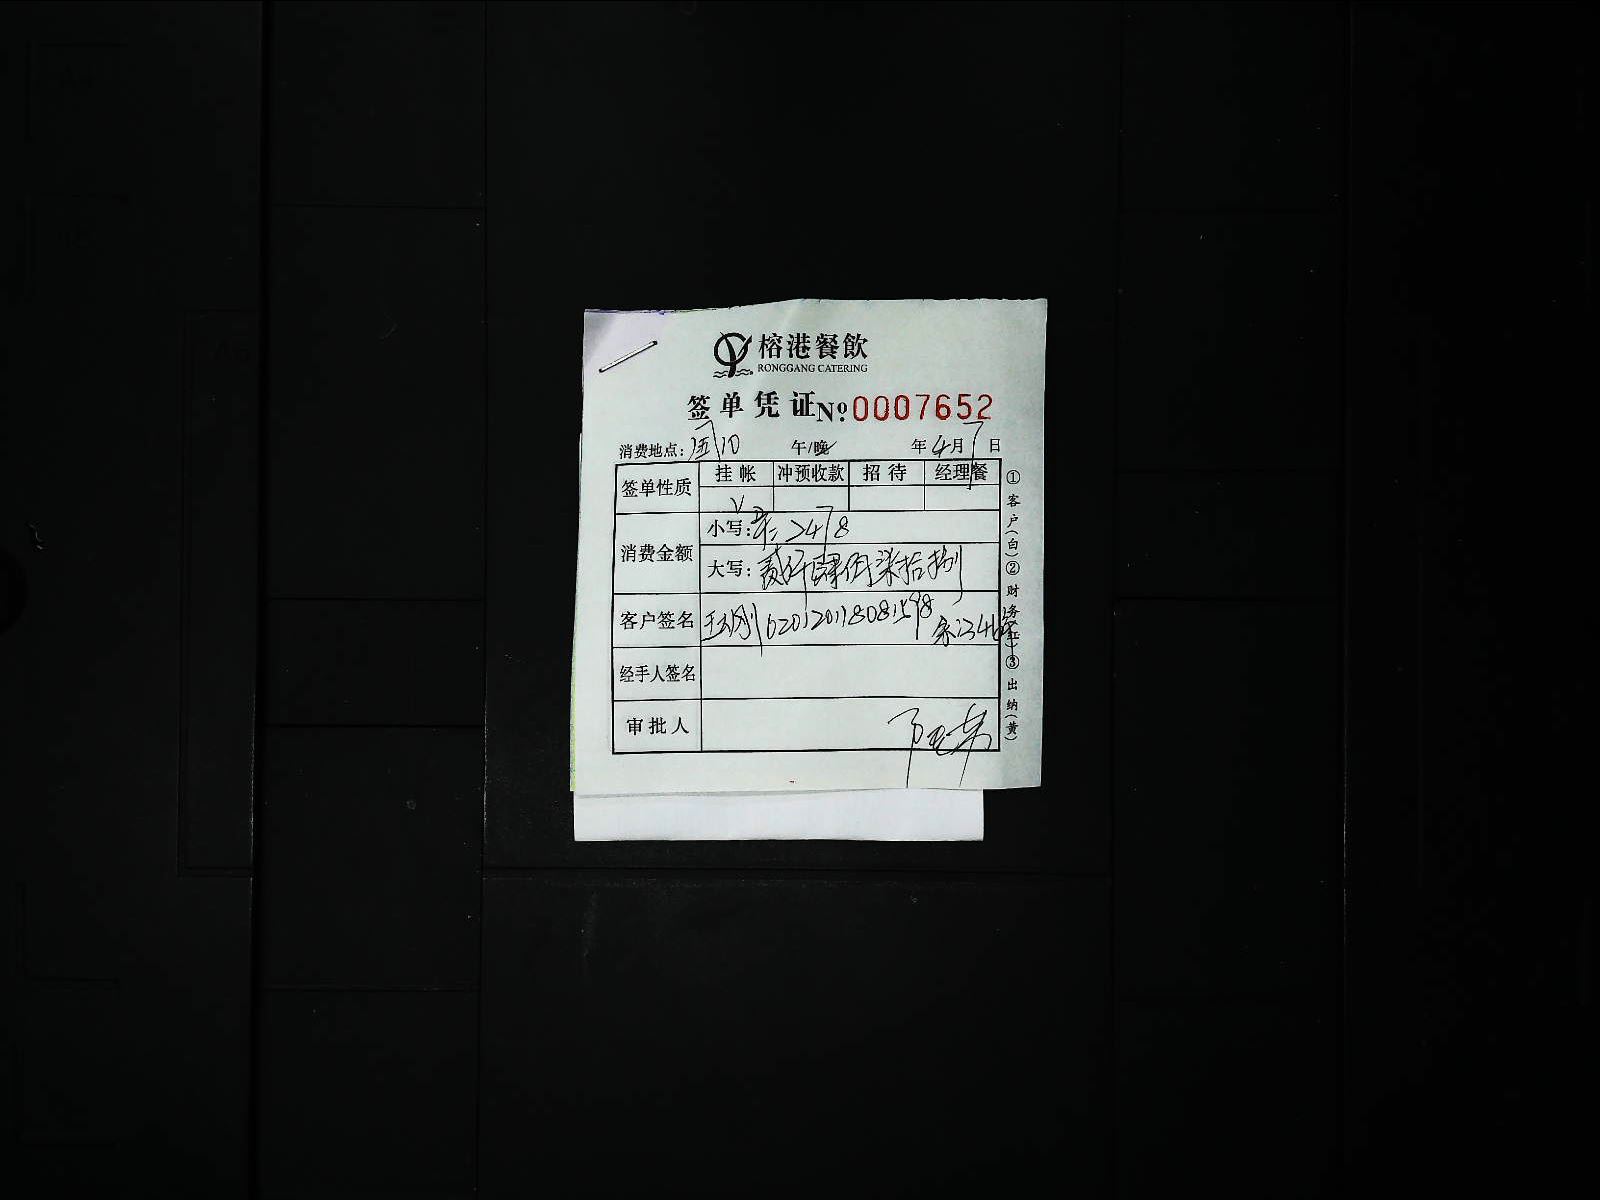 榕港餐飲
RONGGANG CATERING
签单凭证 №0007652
消费地点: 10 午/晚 年4月7日
签单性质 挂帐 冲预收款 招待 经理餐
√
消费金额 小写: 2478
大写: 贰仟肆佰柒拾捌
客户签名
经手人签名
审批人
①客户(白)②财务(红)③出纳(黄)